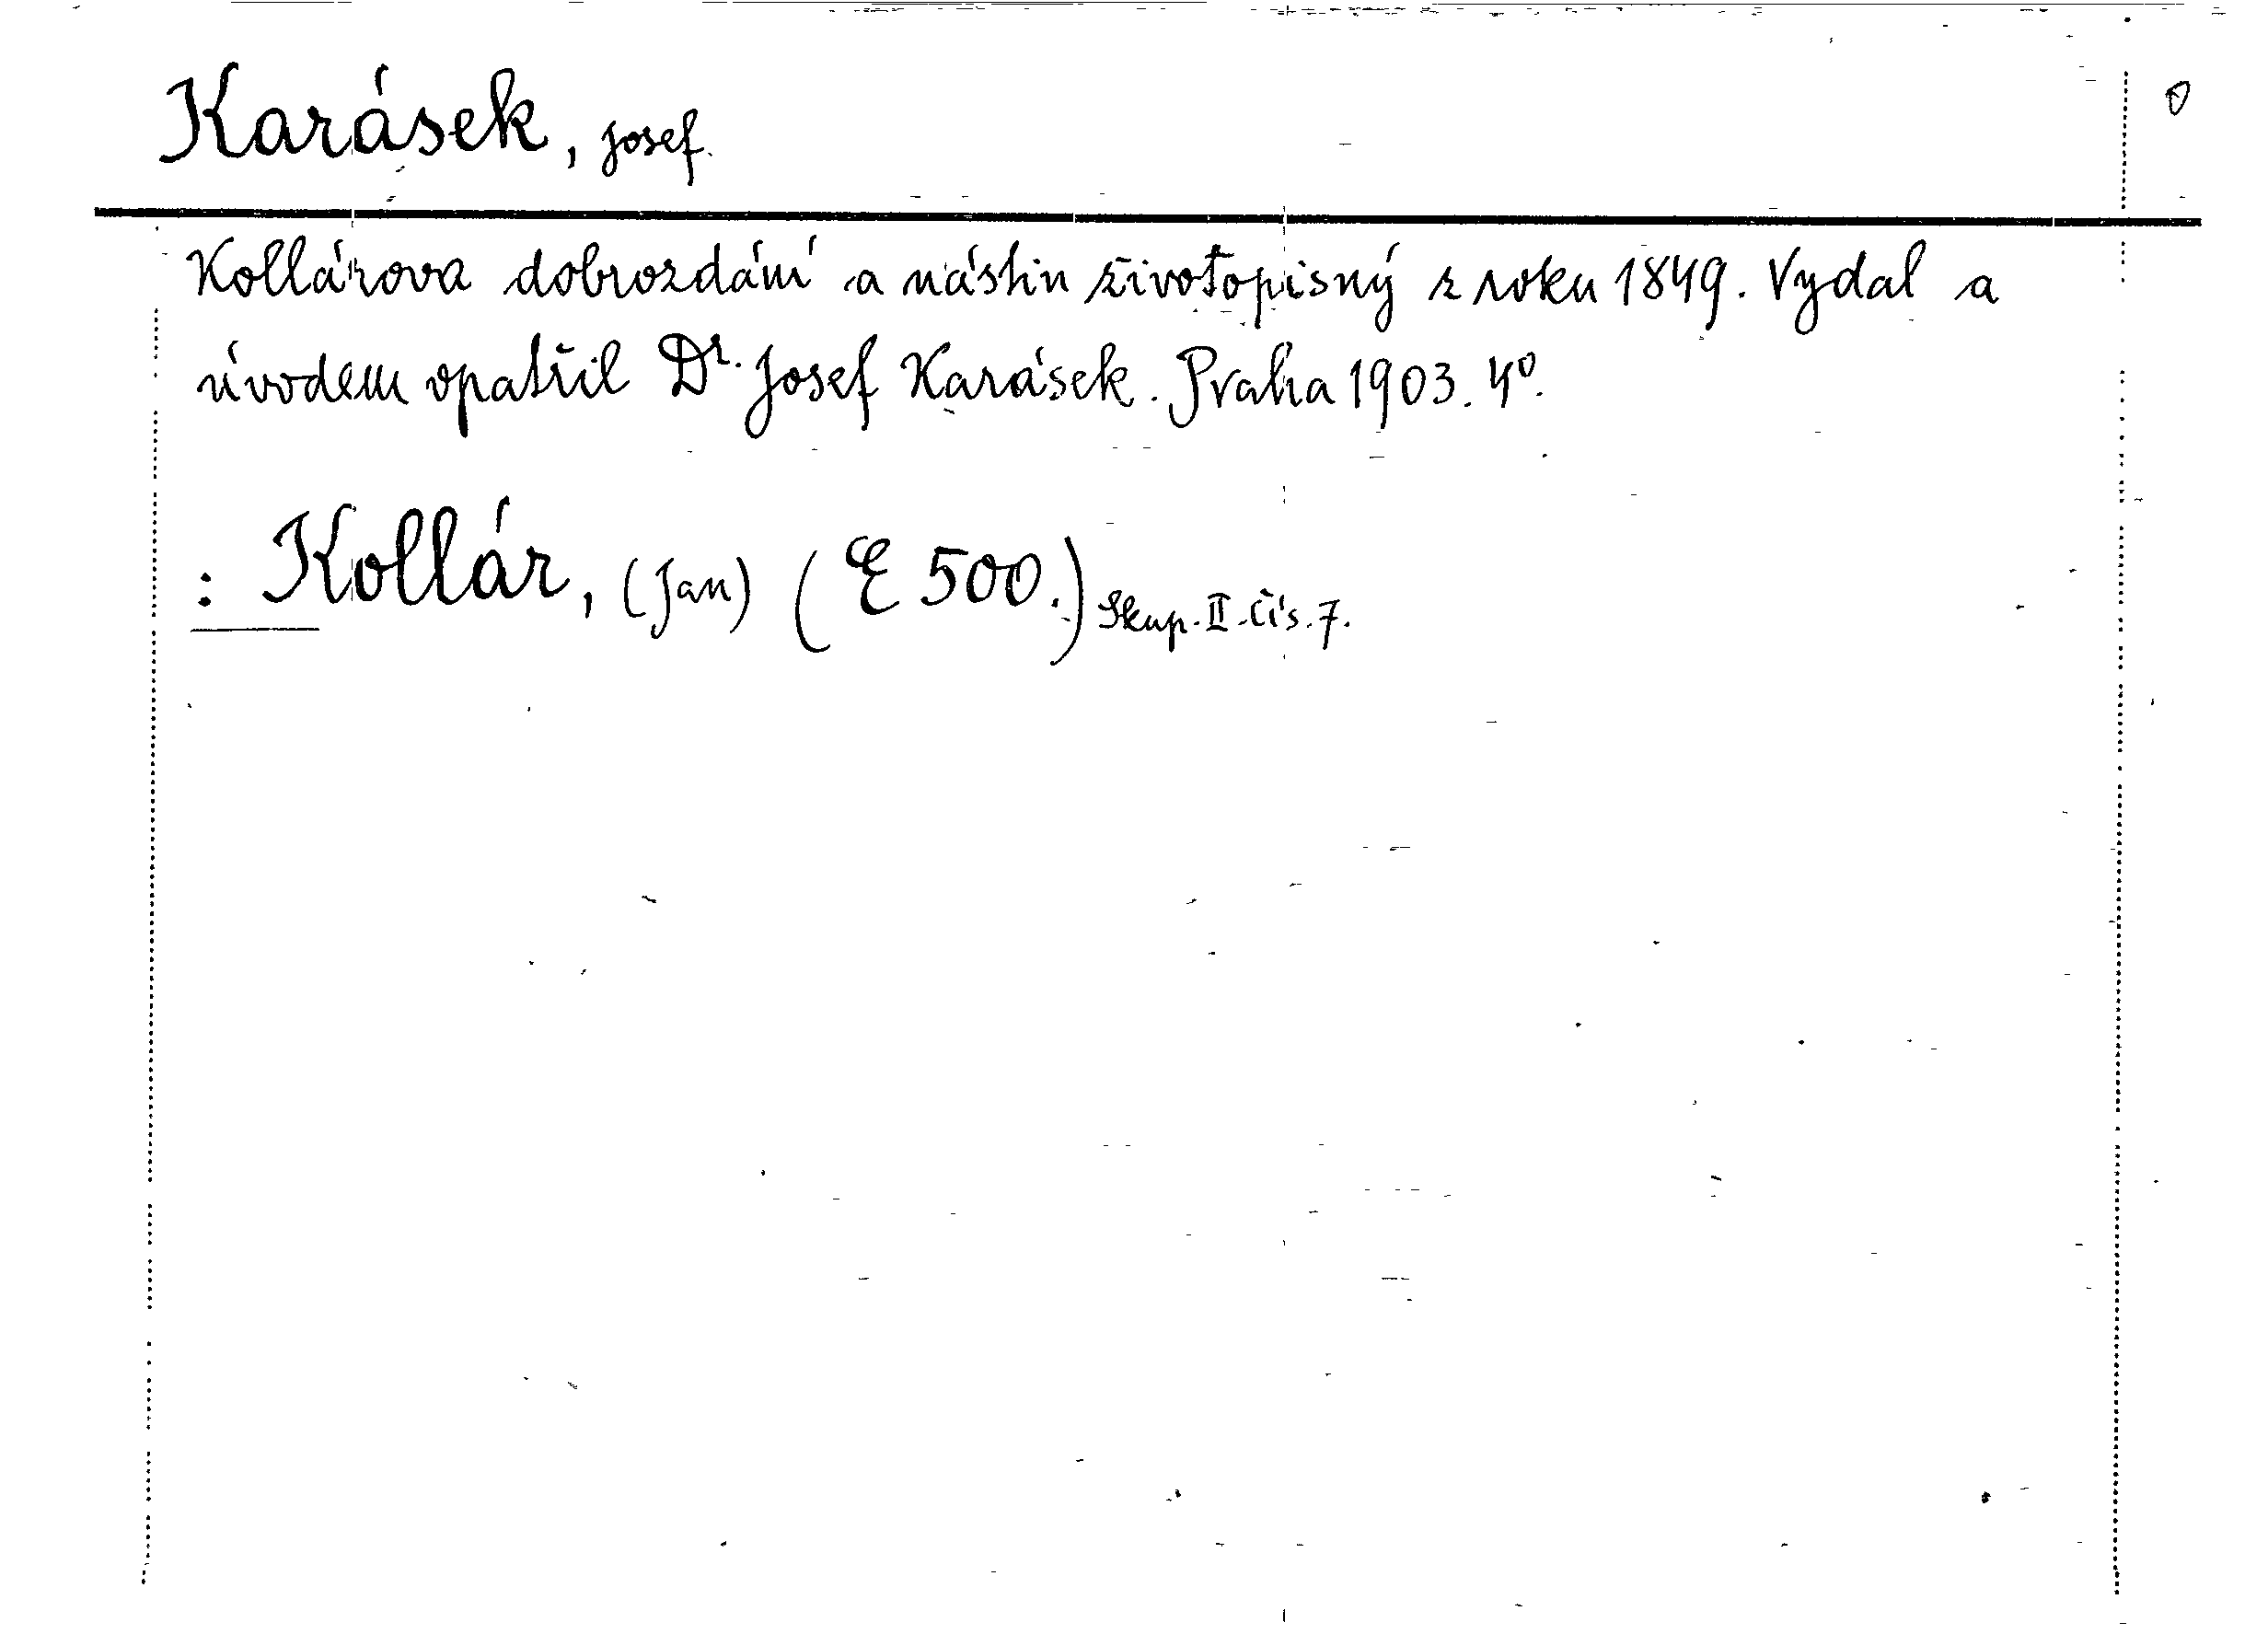 Karásek, Josef.
Kollárova dobrozdání a nástin životopisný z roku 1849. Vydal a
úvodem opatřil Dr. Josef Karásek. Praha 1903. 4º.
: Kollár, (Jan) (E 500.) Skup. II. čís. 7.